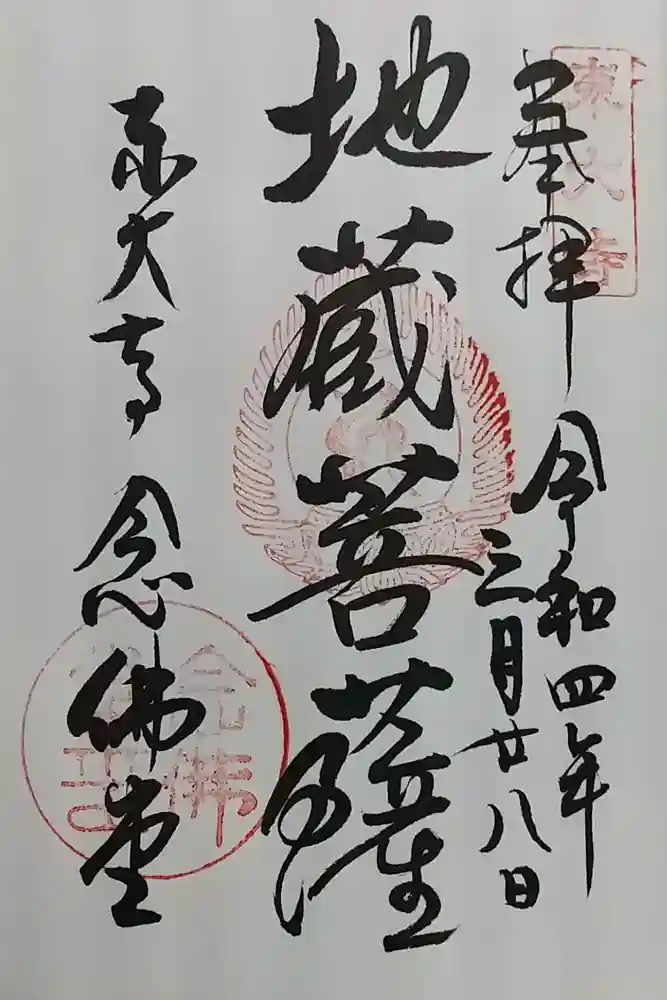 奉拝
東大寺
令和四年
三月廿八日
地蔵菩薩
東大寺 念佛堂
念佛堂